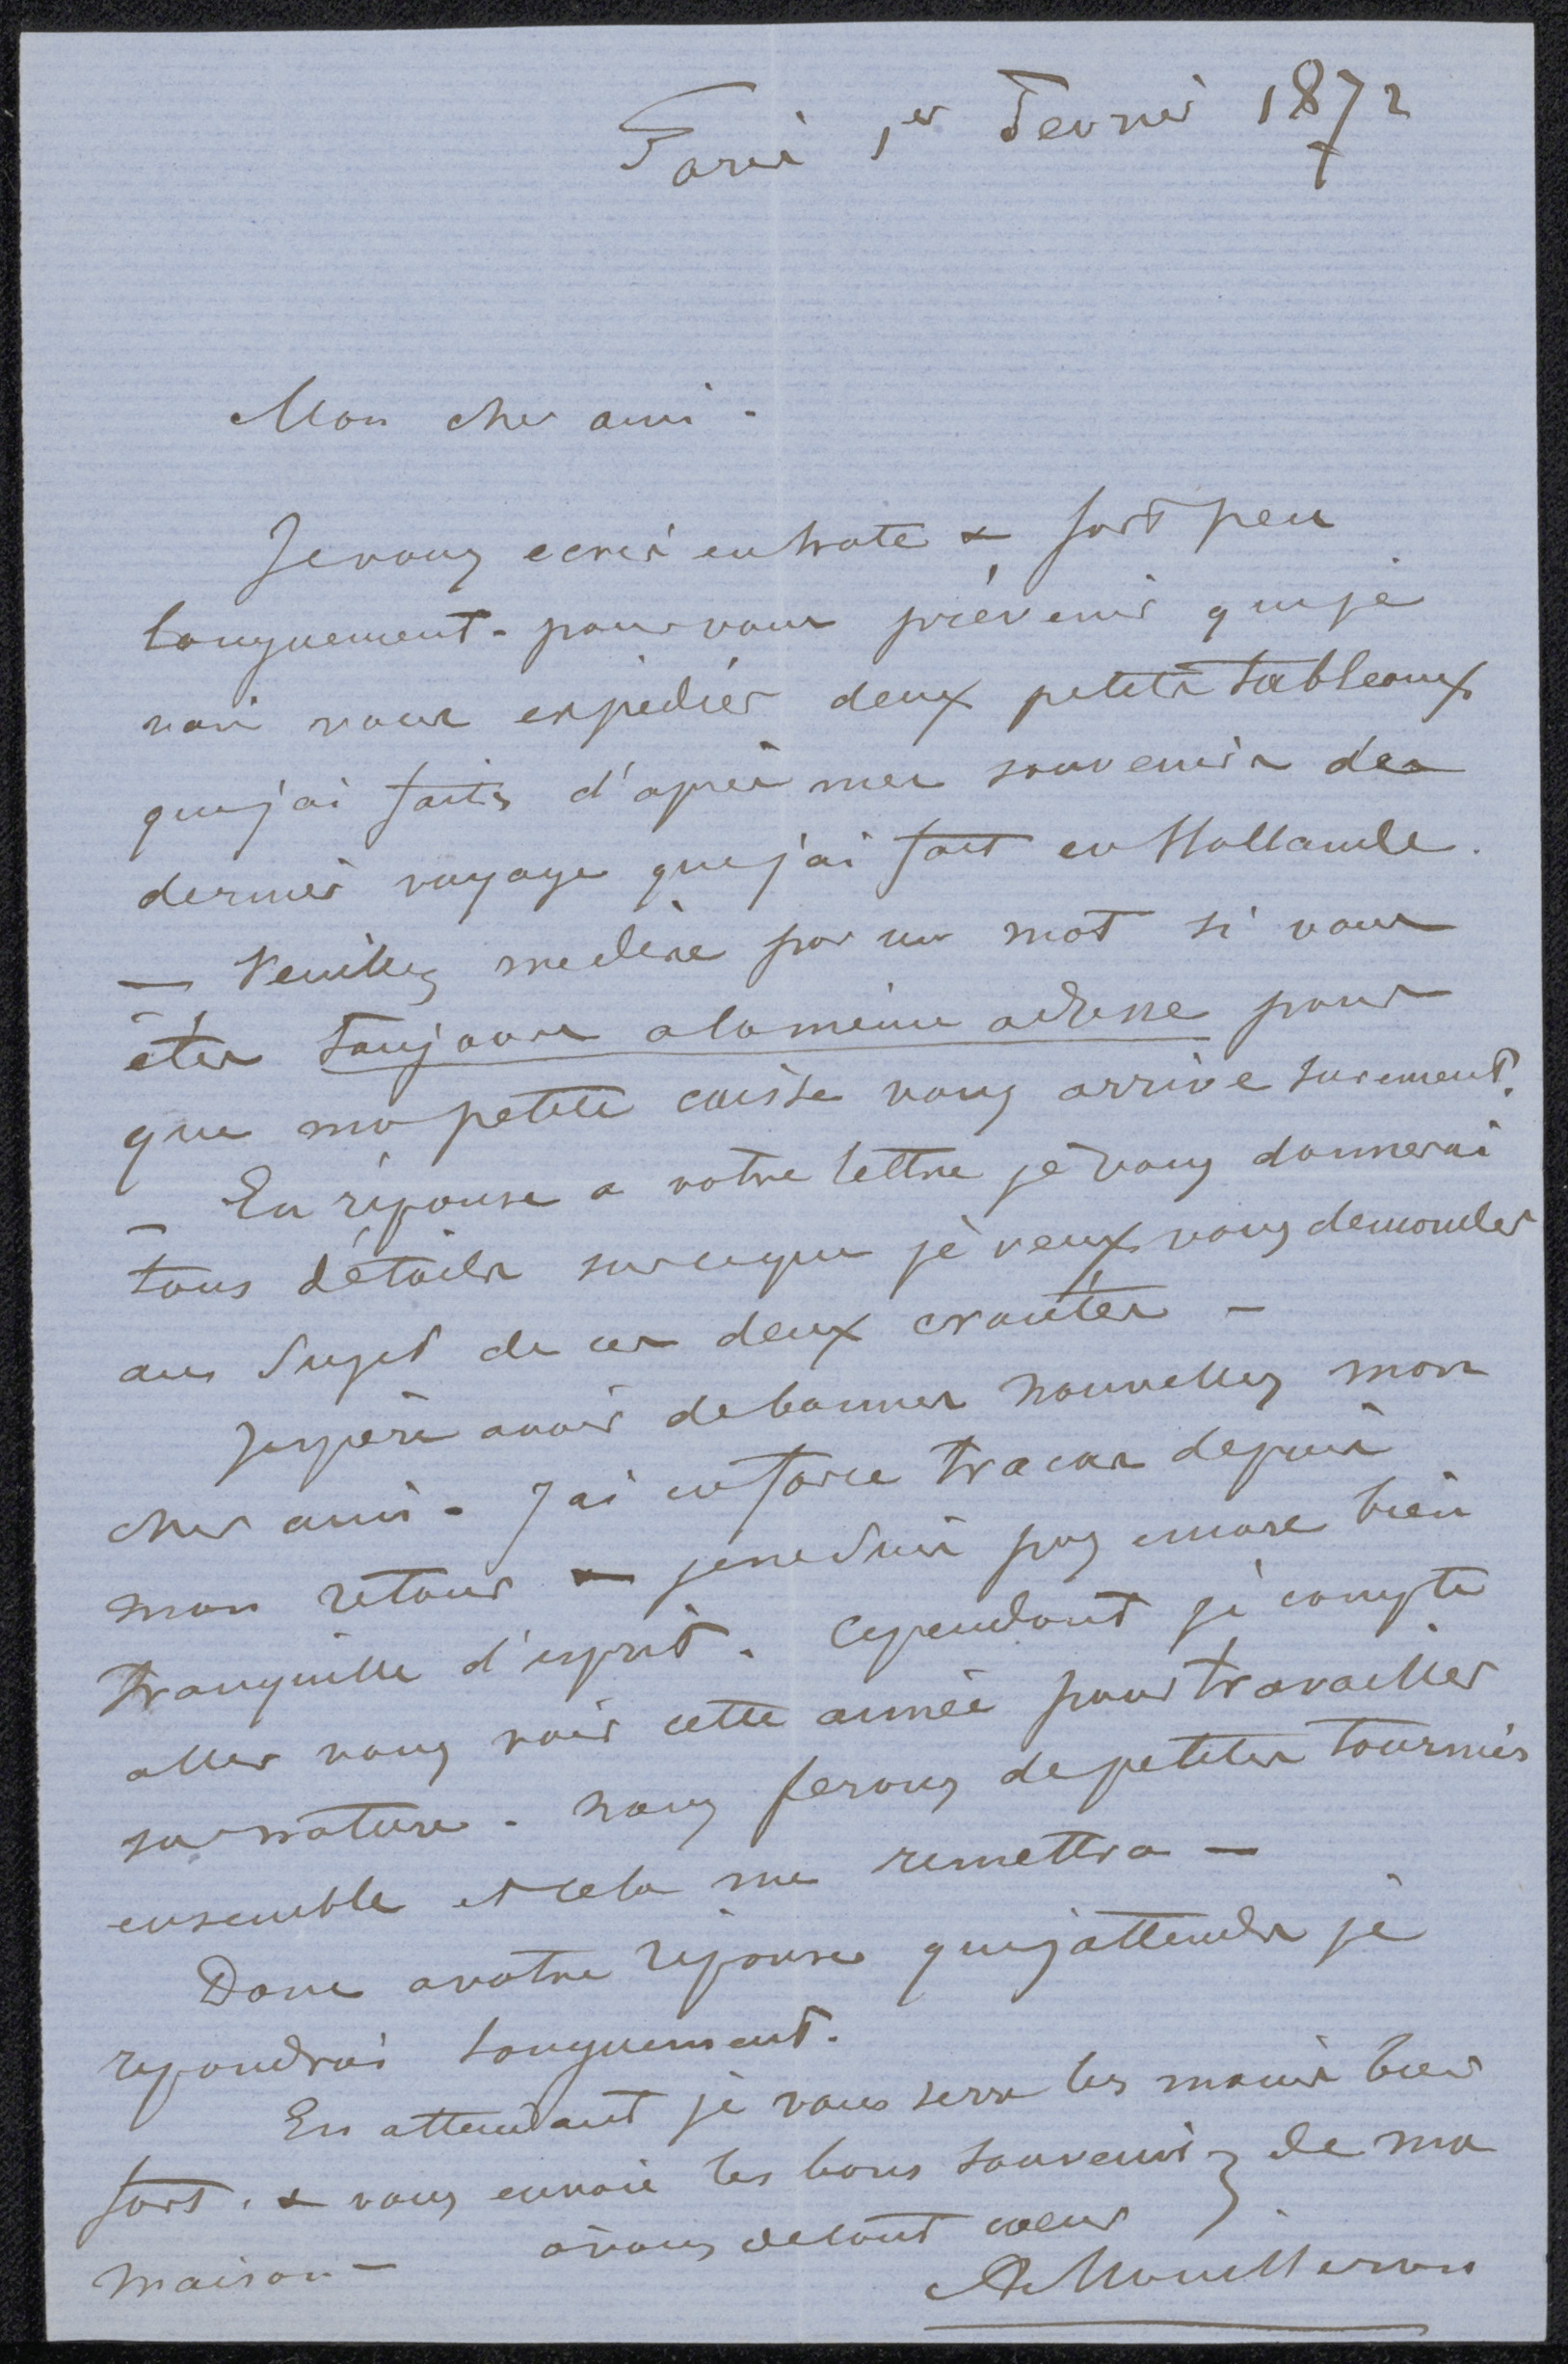 Paris 1er Fevrier 1872
Mon cher ami.
Je vous ecris en hate & fort peu
longuement. pour vous prévenir que je
vais vous expédier deux petits tableaux
que j'ai faits d'après mes souvenirs des
dernier voyage que j'ai fait en Hollande.
— Veuillez me dire par un mot si vous
êtes toujours a la même adresse pour
que ma petite caisse vous arrive surement.
— En réponse a votre lettre je vous donnerai
tous détails sur ce que je veux vous demander
au sujet de ces deux croutes —
J'espère avoir de bonnes nouvelles mon
cher ami. J'ai eu force tracas depuis
mon retour & je ne suis pas encore bien
tranquille d'esprit. Cependant je compte
aller vous voir cette année pour travailler
sur nature. nous ferons de petites tournées
ensemble et cela me remettra —
Donc a votre réponse que j'attends je
repondrai longuement.
En attendant je vous serre les mains bien
fort. & vous envoie les bons souvenirs de ma
maison — à vous de tout coeur
A Mouilleron